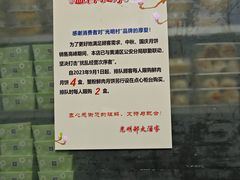 感谢消费者对"光明邨"品牌的厚爱!
为了更好地满足顾客需求，中秋、国庆月饼
销售高峰期间，本店已与黄浦区公安分局联勤联动，
坚决打击"扰乱经营次序者"。
自2023年9月1日起，排队顾客每人限购鲜肉
月饼 4 盒，蟹粉鲜肉月饼另行设在点心柜台购买，
排队每人限购 2 盒。
衷心感谢您的理解、支持与配合!
光明邨大酒家